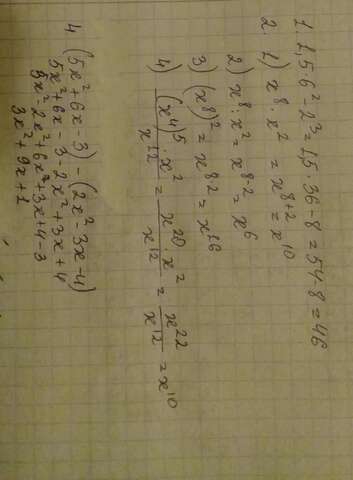 1. 1,5 6² - 2³ = 1,5 36 - 8 = 54 - 8 = 46
2. 1) x⁸ · x² = x⁸⁺² = x¹⁰
2) x⁸ : x² = x⁸⁻² = x⁶
3) (x⁸)² = x⁸·² = x¹⁶
4) (x⁴)⁵ · x² / x¹² = x²⁰ x² / x¹² = x²² / x¹² = x¹⁰
4 (5x² + 6x - 3) - (2x² - 3x - 4)
5x² + 6x - 3 - 2x² + 3x + 4
5x² - 2x² + 6x² + 3x + 4 - 3
3x² + 9x + 1